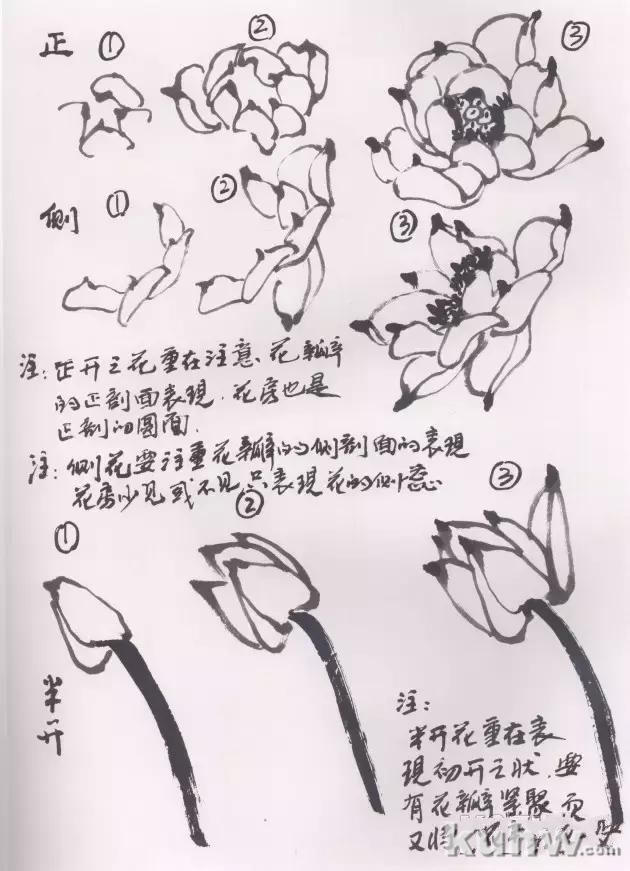 正 ① ② ③
侧 ① ② ③
注：正开之花重在注意、花瓣
的正剖面表現．花房也是
正剖的圆面．
注：侧花要注重花瓣的侧剖面的表現
花房少见或不见只表現花的侧蕊
① ② ③
半开
注：
半开花重在表
現初开之状．要
有花瓣紧聚而
又
kufrw.com